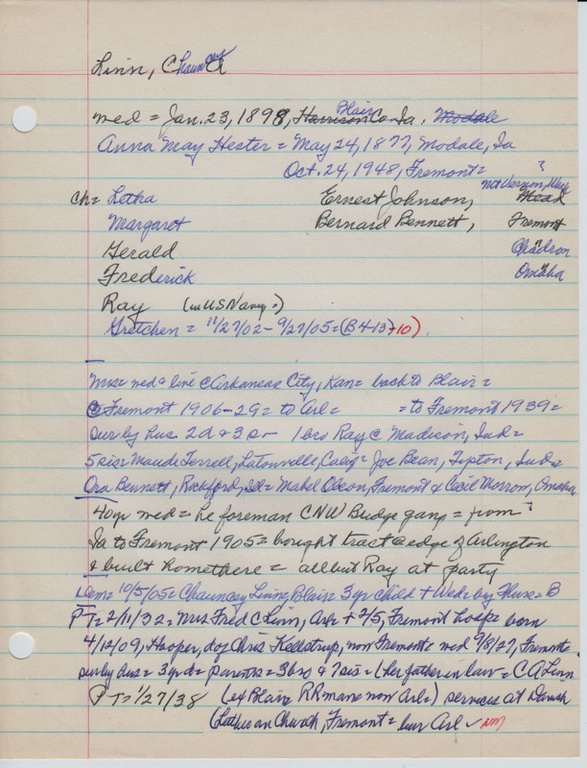 Linn, Chauncey A
med = Jan. 23, 1898, Harrison Blair Co Ia. Modale
Anna May Hester = May 24, 1877, Modale, Ia
Oct. 24, 1948, Fremont =
?
Mt Vernon, Wash
ch = Letha Ernest Johnson, Mead
Margaret Bernard Bennett, Fremont
Gerald Chadron
Frederick " Omaha
Ray (in US Navy =)
Gretchen = 11/27/02 - 9/27/05 = (B4-13) +10)
Mrs = med & live @ Arkansas City, Kan = back to Blair =
@ Fremont 1906-29 = to Arl = = to Fremont 1939 =
sur by hus 2d & 3s - 1 bro Ray @ Madison, Ind =
5 sis = Maude Terrell, Calif = Joe Bean, Tipton, Ind &
Ora Bennett, Rockford, Ill = Mabel Olson, Fremont & Cecil Morrow, Omaha
40yr med = he foreman CNW Bridge gang = from ?
Ia to Fremont 1905 = bought tract @ edge of Arlington
& built home there = all but Ray at party
Dem = 10/5/05 = Chauncey Linn, Blair = 3 yr child + Wed = by = B
P T = 2/11/32 = Mrs Fred C Linn, Arl = + 2/5, Fremont hosp = born
4/12/09, Hooper, d of Chris Kellstrup, now Fremont = med 9/8/27, Fremont
sur by hus = 3 yr d = parents = 3 bro & 7 sis = (her father in law = C A Linn
P T = 1/27/38 (ex Blair RR man = now Arl =) services at Danish
(Lutheran Church, Fremont = bur Arl ✓ nm